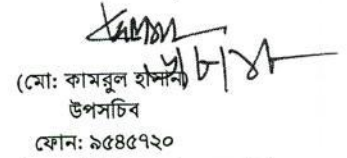 (মো: কামরুল হাসান)
উপসচিব
ফোন: ৯৫৪৫৭২০